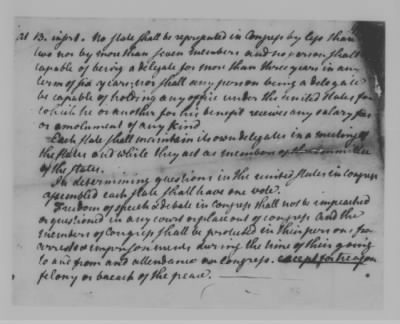 at 13. insert. No state shall be represented in Congress by less than
two nor by more than seven members and no person shall
capable of being a delegate for more than three years in any
term of six years; nor shall any person being a delegate
be capable of holding any office under the united states for
which he or another for his benefit receives any salary, fees
or emolument of any kind
Each state shall maintain its own delegates in a meeting of
the states and while they act as members of the committee
of the states.
In determining questions in the united states in congress
assembled each state shall have one vote.
Freedom of speech & debate in Congress shall not be impeached
or questioned in any court or place out of congress and the
members of Congress shall be protected in their persons from
arrests or imprisonments during the time of their going
to and from and attendance on Congress. except for treason
felony or breach of the peace.